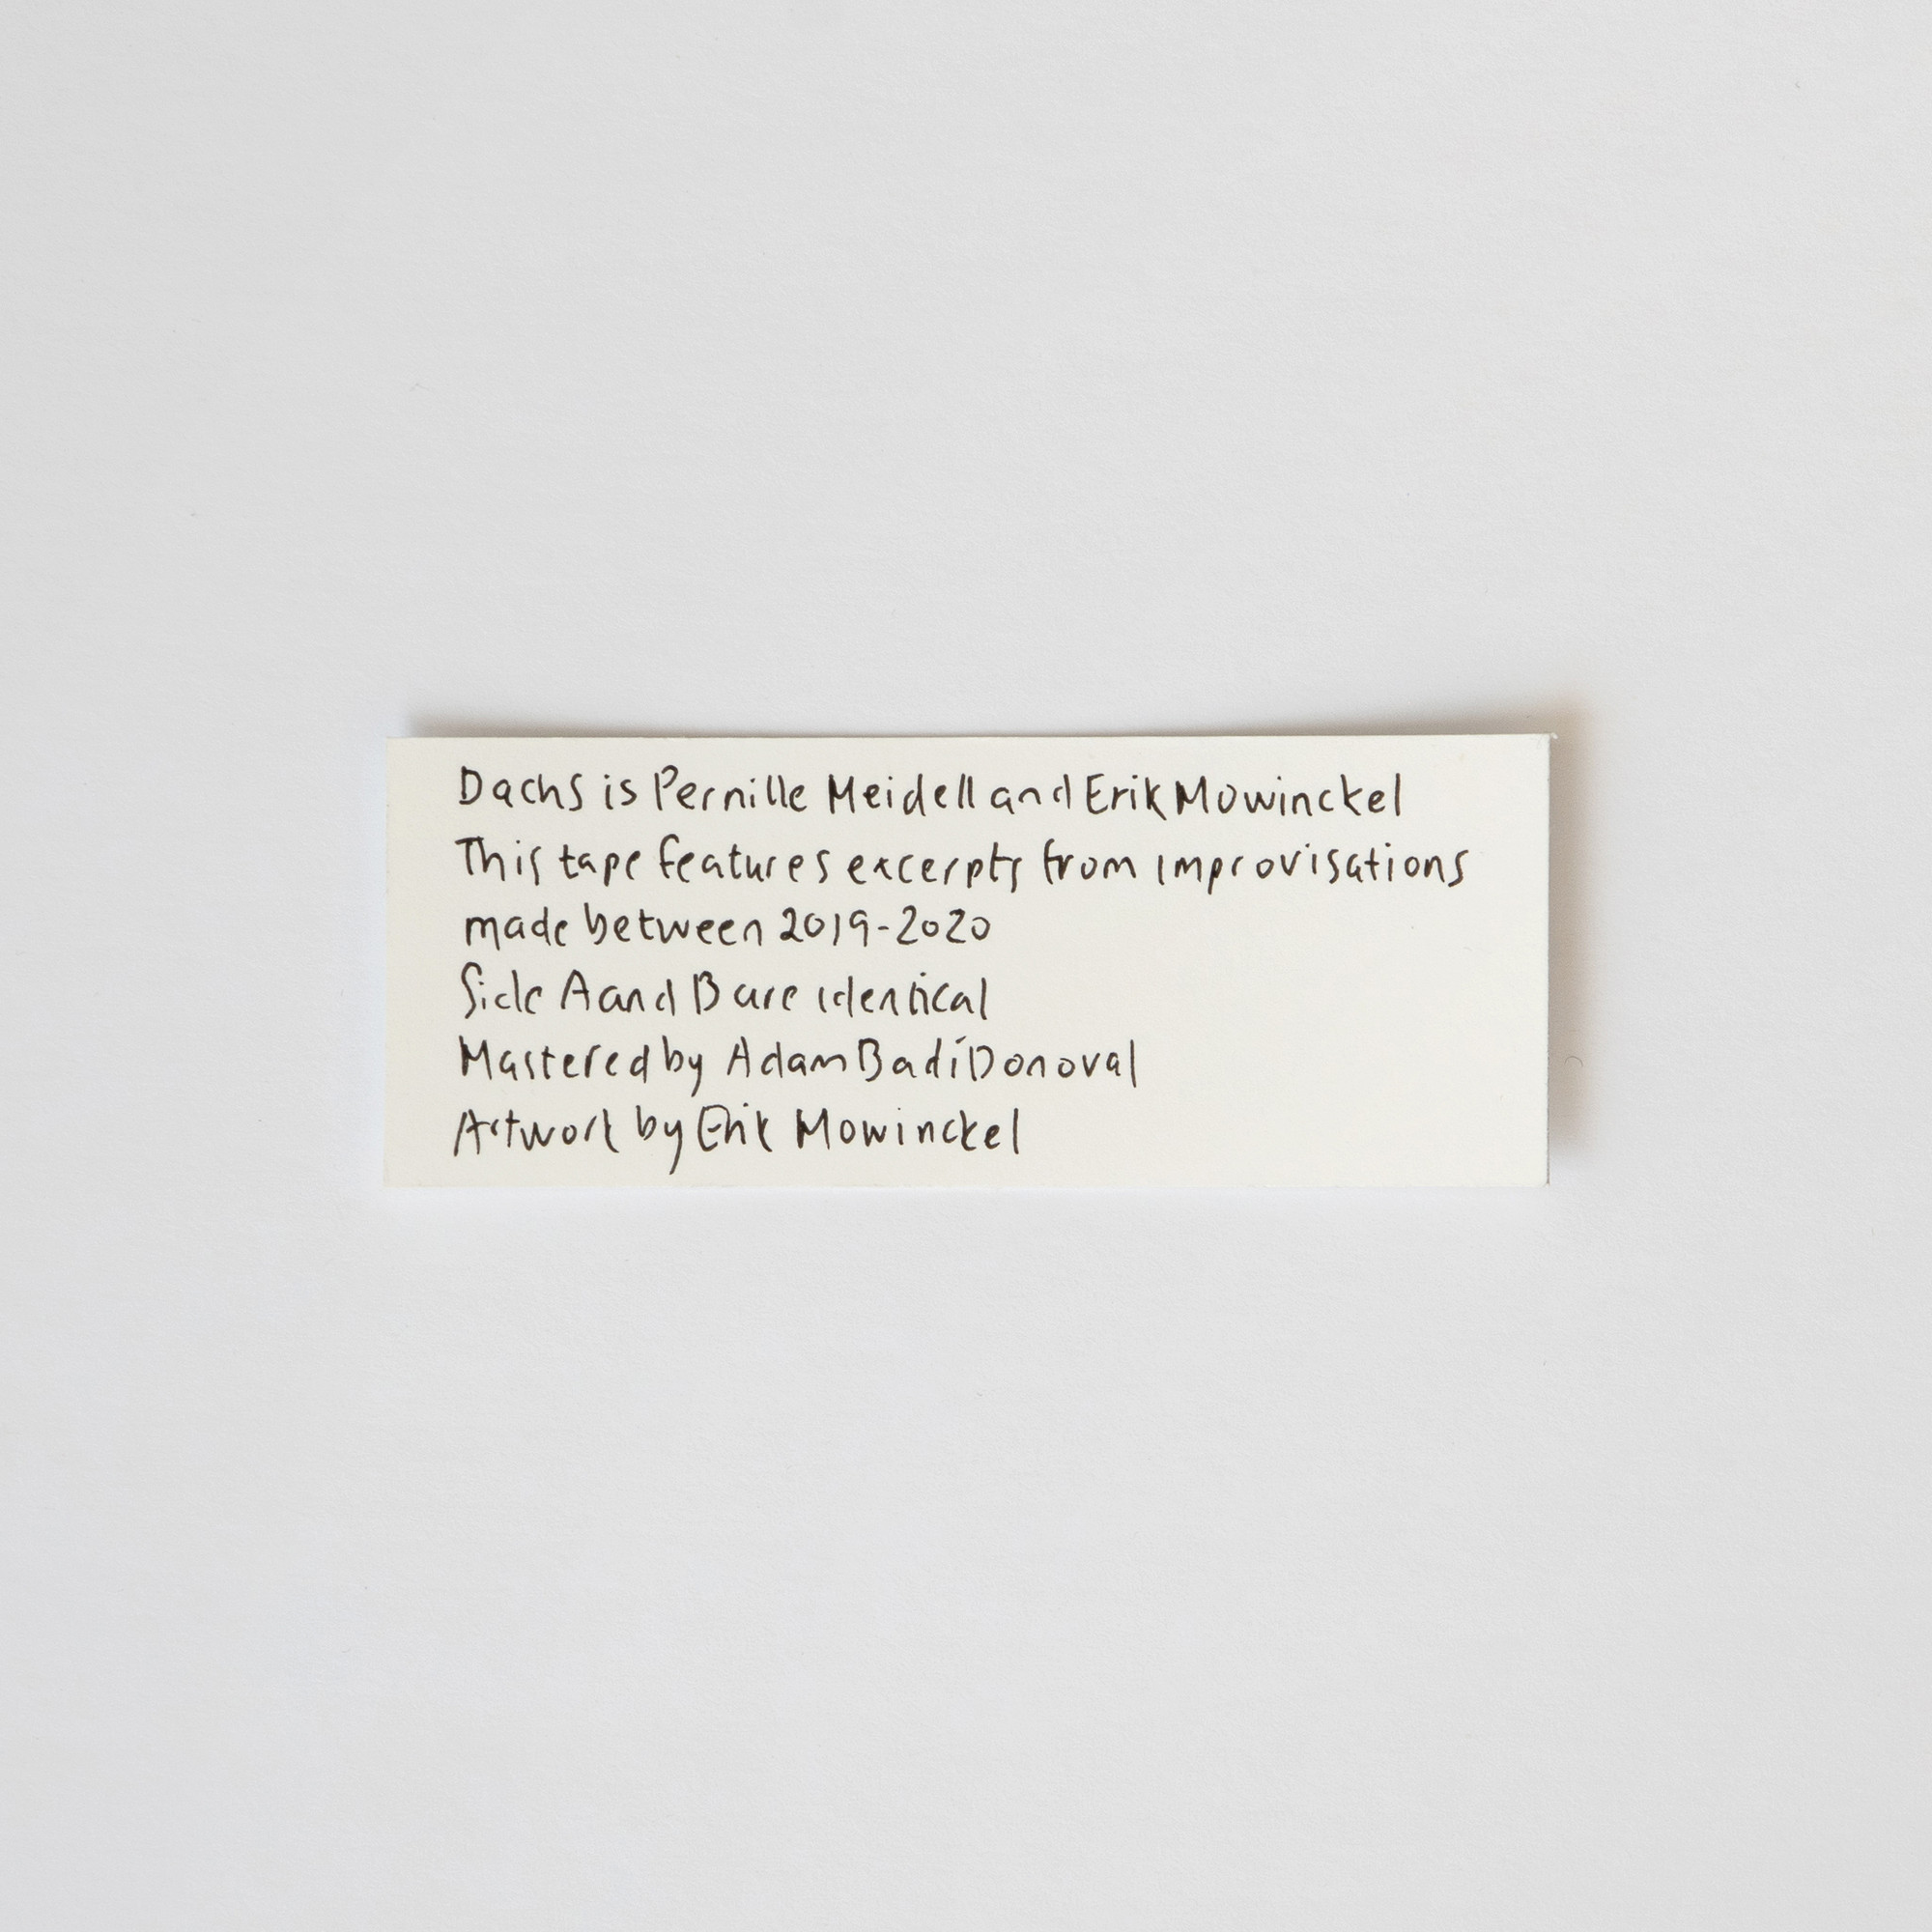 Dachs is Pernille Meidell and Erik Mowinckel
This tape features excerpts from improvisations
made between 2019-2020
Side A and B are identical
Mastered by Adam Badí Donoval
Artwork by Erik Mowinckel